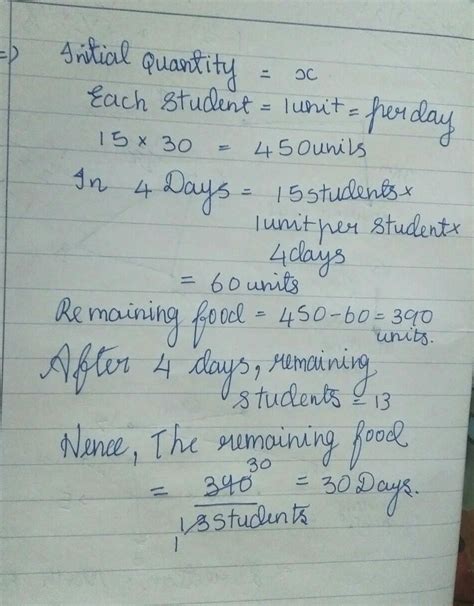 => Initial Quantity = x
Each Student = 1unit = perday
15 × 30 = 450units
In 4 Days = 15students×
1unit per student×
4days
= 60units
Remaining food = 450-60=390
units.
After 4 days, remaining
students = 13
Hence, The remaining food
30
= 390 = 30Days.
13students
1